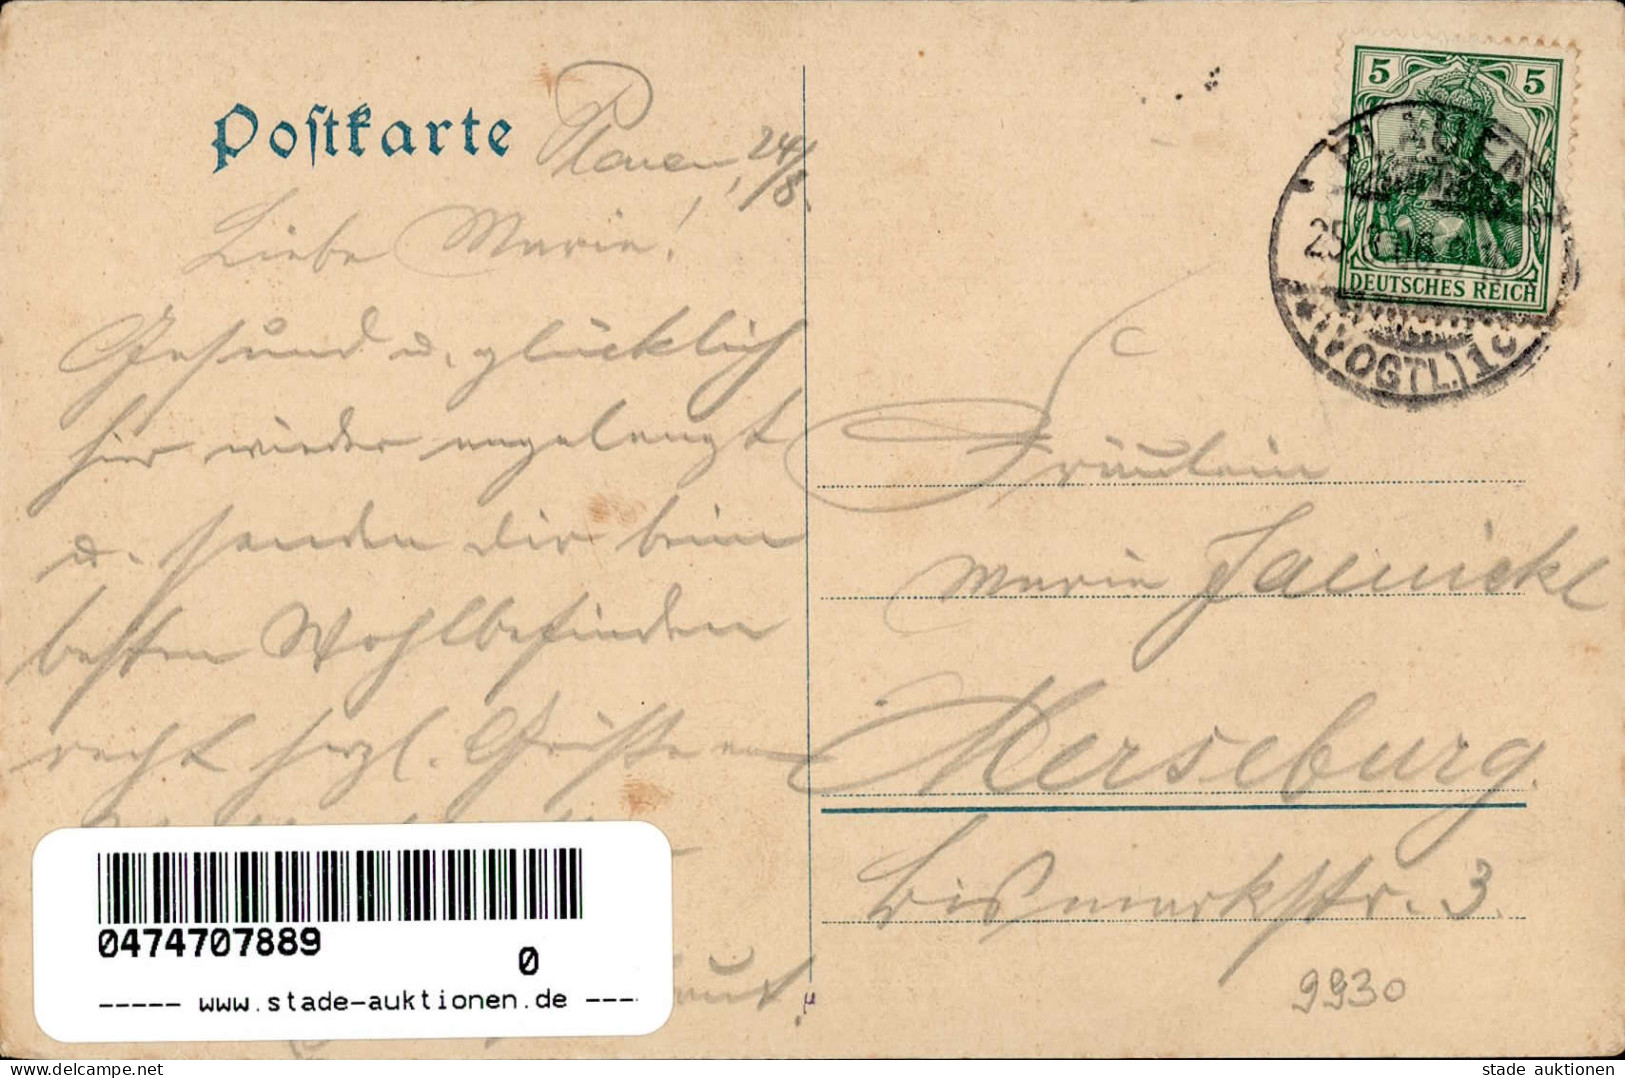 Postkarte
Plauen, 24/8.
Liebe Marie!
Gesund u. glücklich
hier wieder angelangt
u. senden dir beim
besten Wohlbefinden
recht herzl. Grüße
5 5
DEUTSCHES REICH
PLAUEN
25.8.06.
* (VOGTL.) 1
Fräulein
Marie Jaenickel
Merseburg.
Bismarkstr. 3.
9930
0474707889
0
----- www.stade-auktionen.de ---
stade auktionen
www.delcampe.net